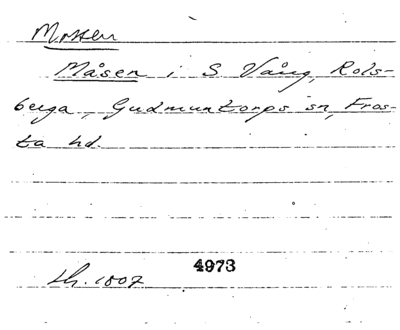 Mossen
Måsen i S Vång, Rols-
berga, Gudmuntorps sn, Fros-
ta hd.
4973
Lh. 1807